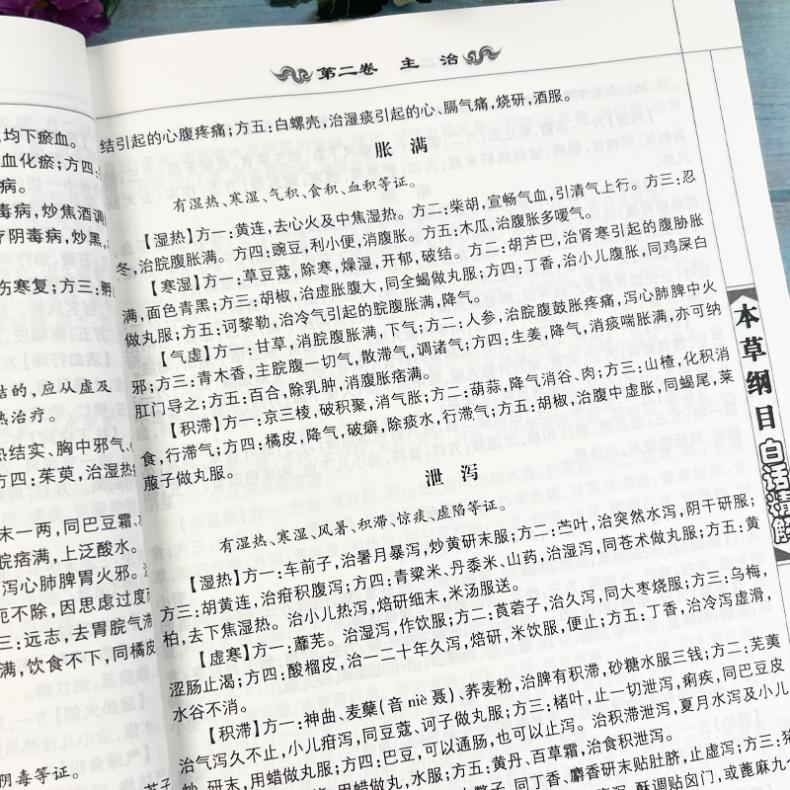 均下瘀血。
血化瘀;方四:
病。
毒病,炒焦酒调
疗阴毒病,炒黑,
伤寒复;方三:
结的,应从虚及
热治疗。
热结实、胸中邪气
方四:茱萸,治湿热
末一两,同巴豆霜、
脘痞满,上泛酸水。
泻心肺脾胃火邪。
厄不除,因思虑过度
三:远志,去胃脘气滞
满,饮食不下,同橘皮
阴毒等证。
第二卷 主 治
结引起的心腹疼痛;方五:白螺壳,治湿痰引起的心、膈气痛,烧研,酒服。
胀 满
有湿热、寒湿、气积、食积、血积等证。
【湿热】方一:黄连,去心火及中焦湿热。方二:柴胡,宣畅气血,引清气上行。方三:忍
冬,治脘腹胀满。方四:豌豆,利小便,消腹胀。方五:木瓜,治腹胀多嗳气。
【寒湿】方一:草豆蔻,除寒,燥湿,开郁,破结。方二:胡芦巴,治肾寒引起的腹胁胀
满,面色青黑;方三:胡椒,治虚胀腹大,同全蝎做丸服;方四:丁香,治小儿腹胀,同鸡屎白
做丸服;方五:诃黎勒,治冷气引起的脘腹胀满,降气。
【气虚】方一:甘草,消脘腹胀满,下气;方二:人参,治脘腹鼓胀疼痛,泻心肺脾中火
邪;方三:青木香,主脘腹一切气,散滞气,调诸气;方四:生姜,降气,消痰喘胀满,亦可纳
肛门导之;方五:百合,除乳肿,消腹胀痞满。
【积滞】方一:京三棱,破积聚,消气胀;方二:葫蒜,降气消谷、肉;方三:山楂,化积消
食,行滞气;方四:橘皮,降气,破癖,除痰水,行滞气;方五:胡椒,治腹中虚胀,同蝎尾,莱
菔子做丸服。
泄 泻
有湿热、寒湿、风暑、积滞、惊痰、虚陷等证。
【湿热】方一:车前子,治暑月暴泻,炒黄研末服;方二:苎叶,治突然水泻,阴干研服;
方三:胡黄连,治疳积腹泻;方四:青粱米、丹黍米、山药,治湿泻,同苍术做丸服;方五:黄
柏,去下焦湿热。治小儿热泻,焙研细末,米汤服送。
【虚寒】方一:蘼芜。治湿泻,作饮服;方二:莨菪子,治久泻,同大枣烧服;方三:乌梅,
涩肠止渴;方四:酸榴皮,治一二十年久泻,焙研,米饮服,便止;方五:丁香,治冷泻虚滑,
水谷不消。
【积滞】方一:神曲、麦糵(音 niè 聂)、荞麦粉,治脾有积滞,砂糖水服三钱;方二:芜荑
治气泻久不止,小儿疳泻,同豆蔻、诃子做丸服;方三:楮叶,止一切泄泻,痢疾,同巴豆皮
炒,研末,用蜡做丸服;方四:巴豆,可以通肠,也可以止泻。治积滞泄泻,夏月水泻及小儿
用蜡做丸,水服;方五:黄丹、百草霜,治食积泄泻。
同丁香、麝香研末贴肚脐,止虚泻;方三:
酥调贴囟门,或蓖麻九个
本草纲目
白话精解